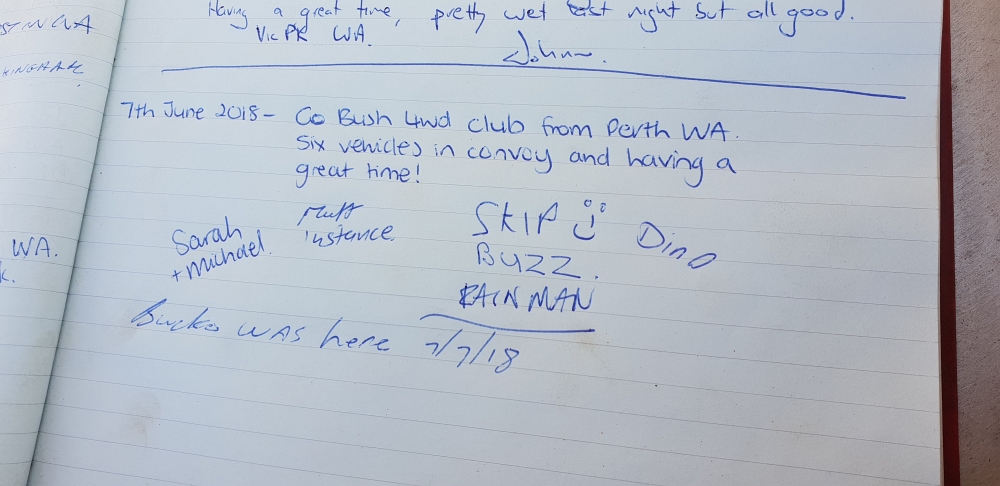 Having a great time, pretty wet last night but all good.
Vic PK WA.
John.
WA
7th June 2018 - Go Bush 4wd club from Perth WA.
Six vehicles in convoy and having a
great time!
Sarah
+ Michael.
instance.
SKIP
DinO
BUZZ.
RAINMAN
WA.
Bucko WAS here 7/7/18